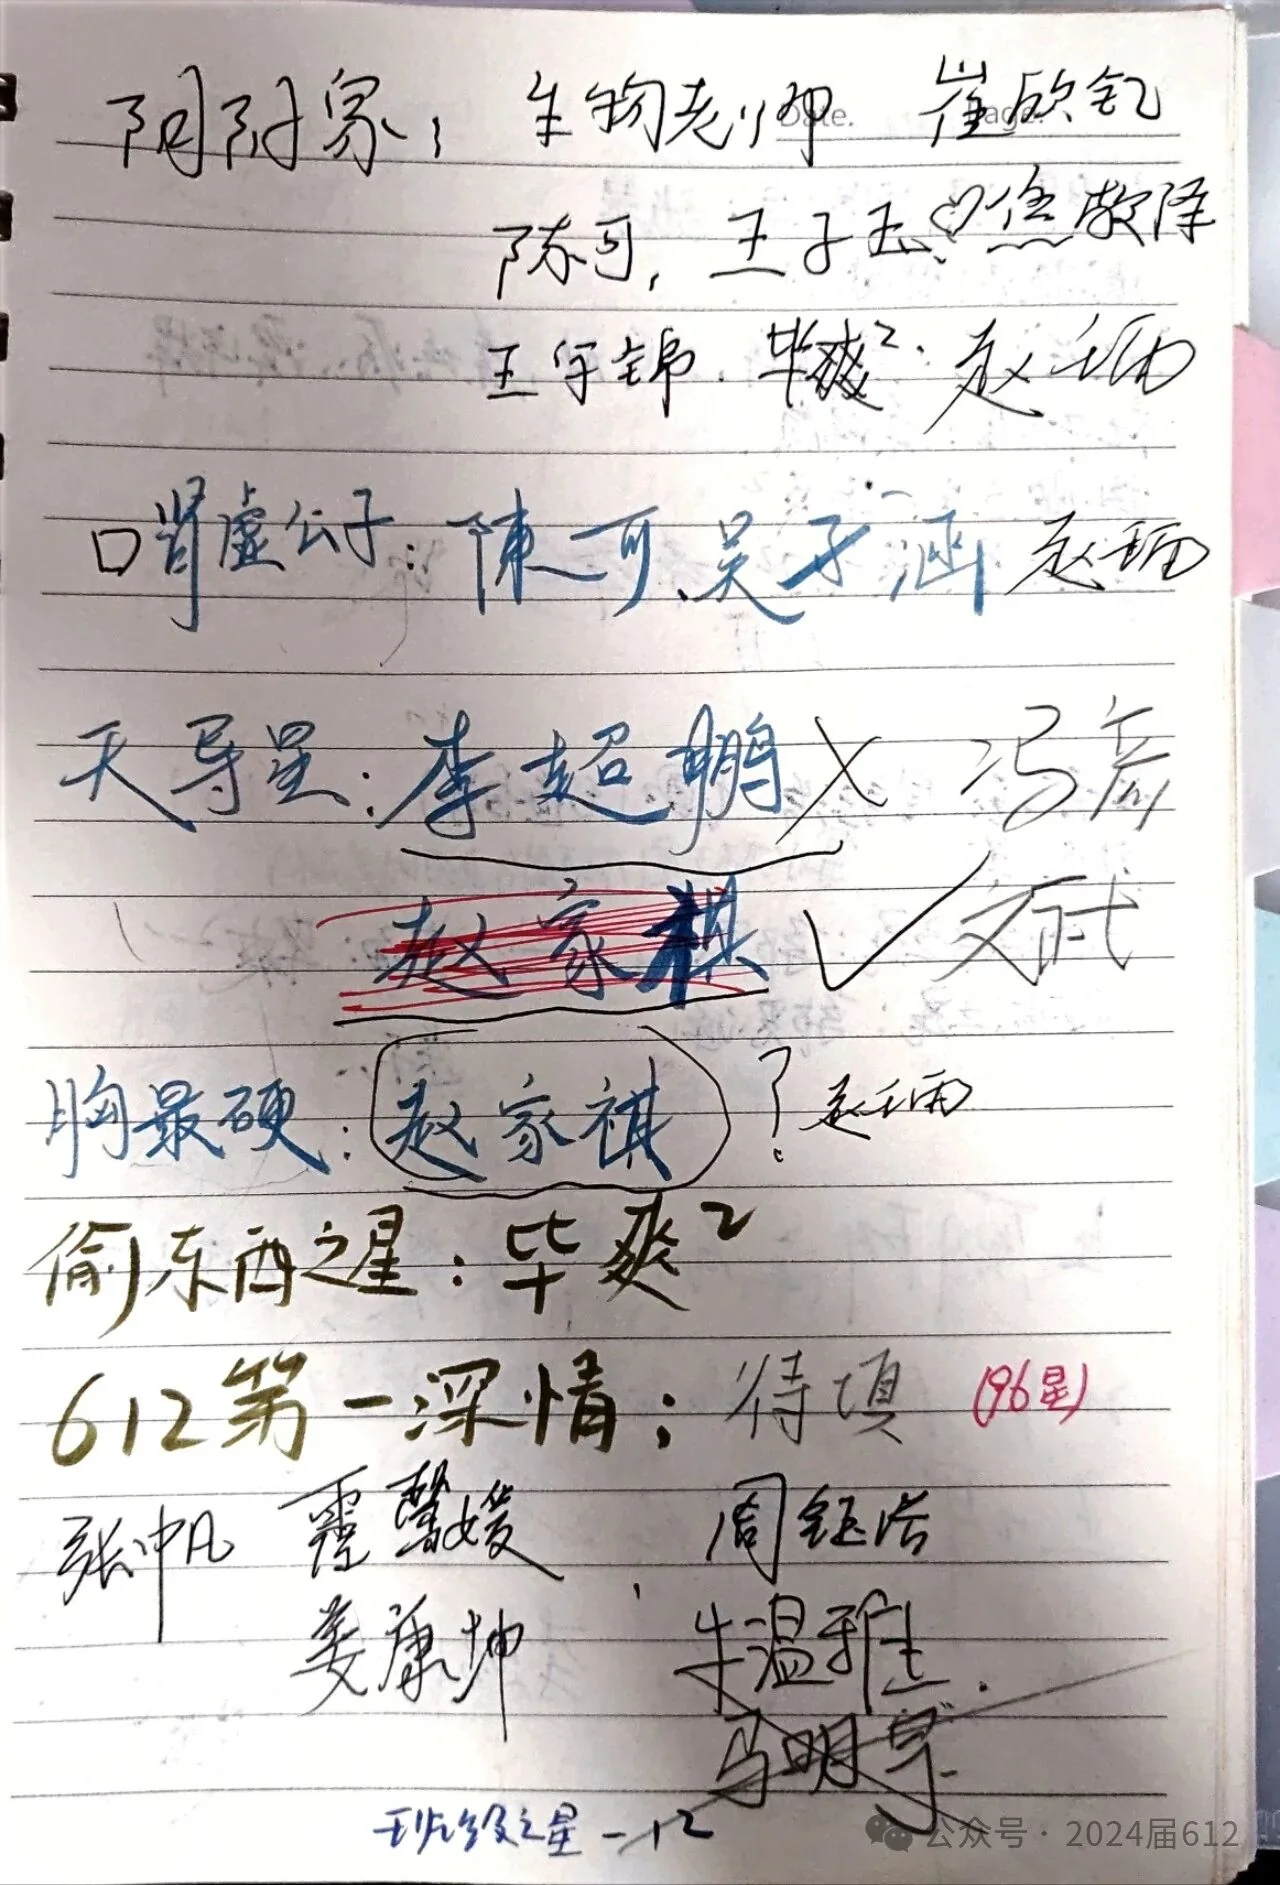 阴阳家：生物老师 崔欣钇
陈可，王子玉、焦敬泽
王宇锦.毕爽².赵珊
口肾虚公子：陳可、吴子涵 赵珊
天导星：李超鹏 冯彦
赵家祺 文武
胸最硬：赵家祺 ？赵珊
偷东西之星：毕爽²
612第一深情；待填 (96星)
张中凡 霍馨媛 周钰浩
姜康坤 牛温雅.
马明宇
班级之星—12
公众号·2024届612